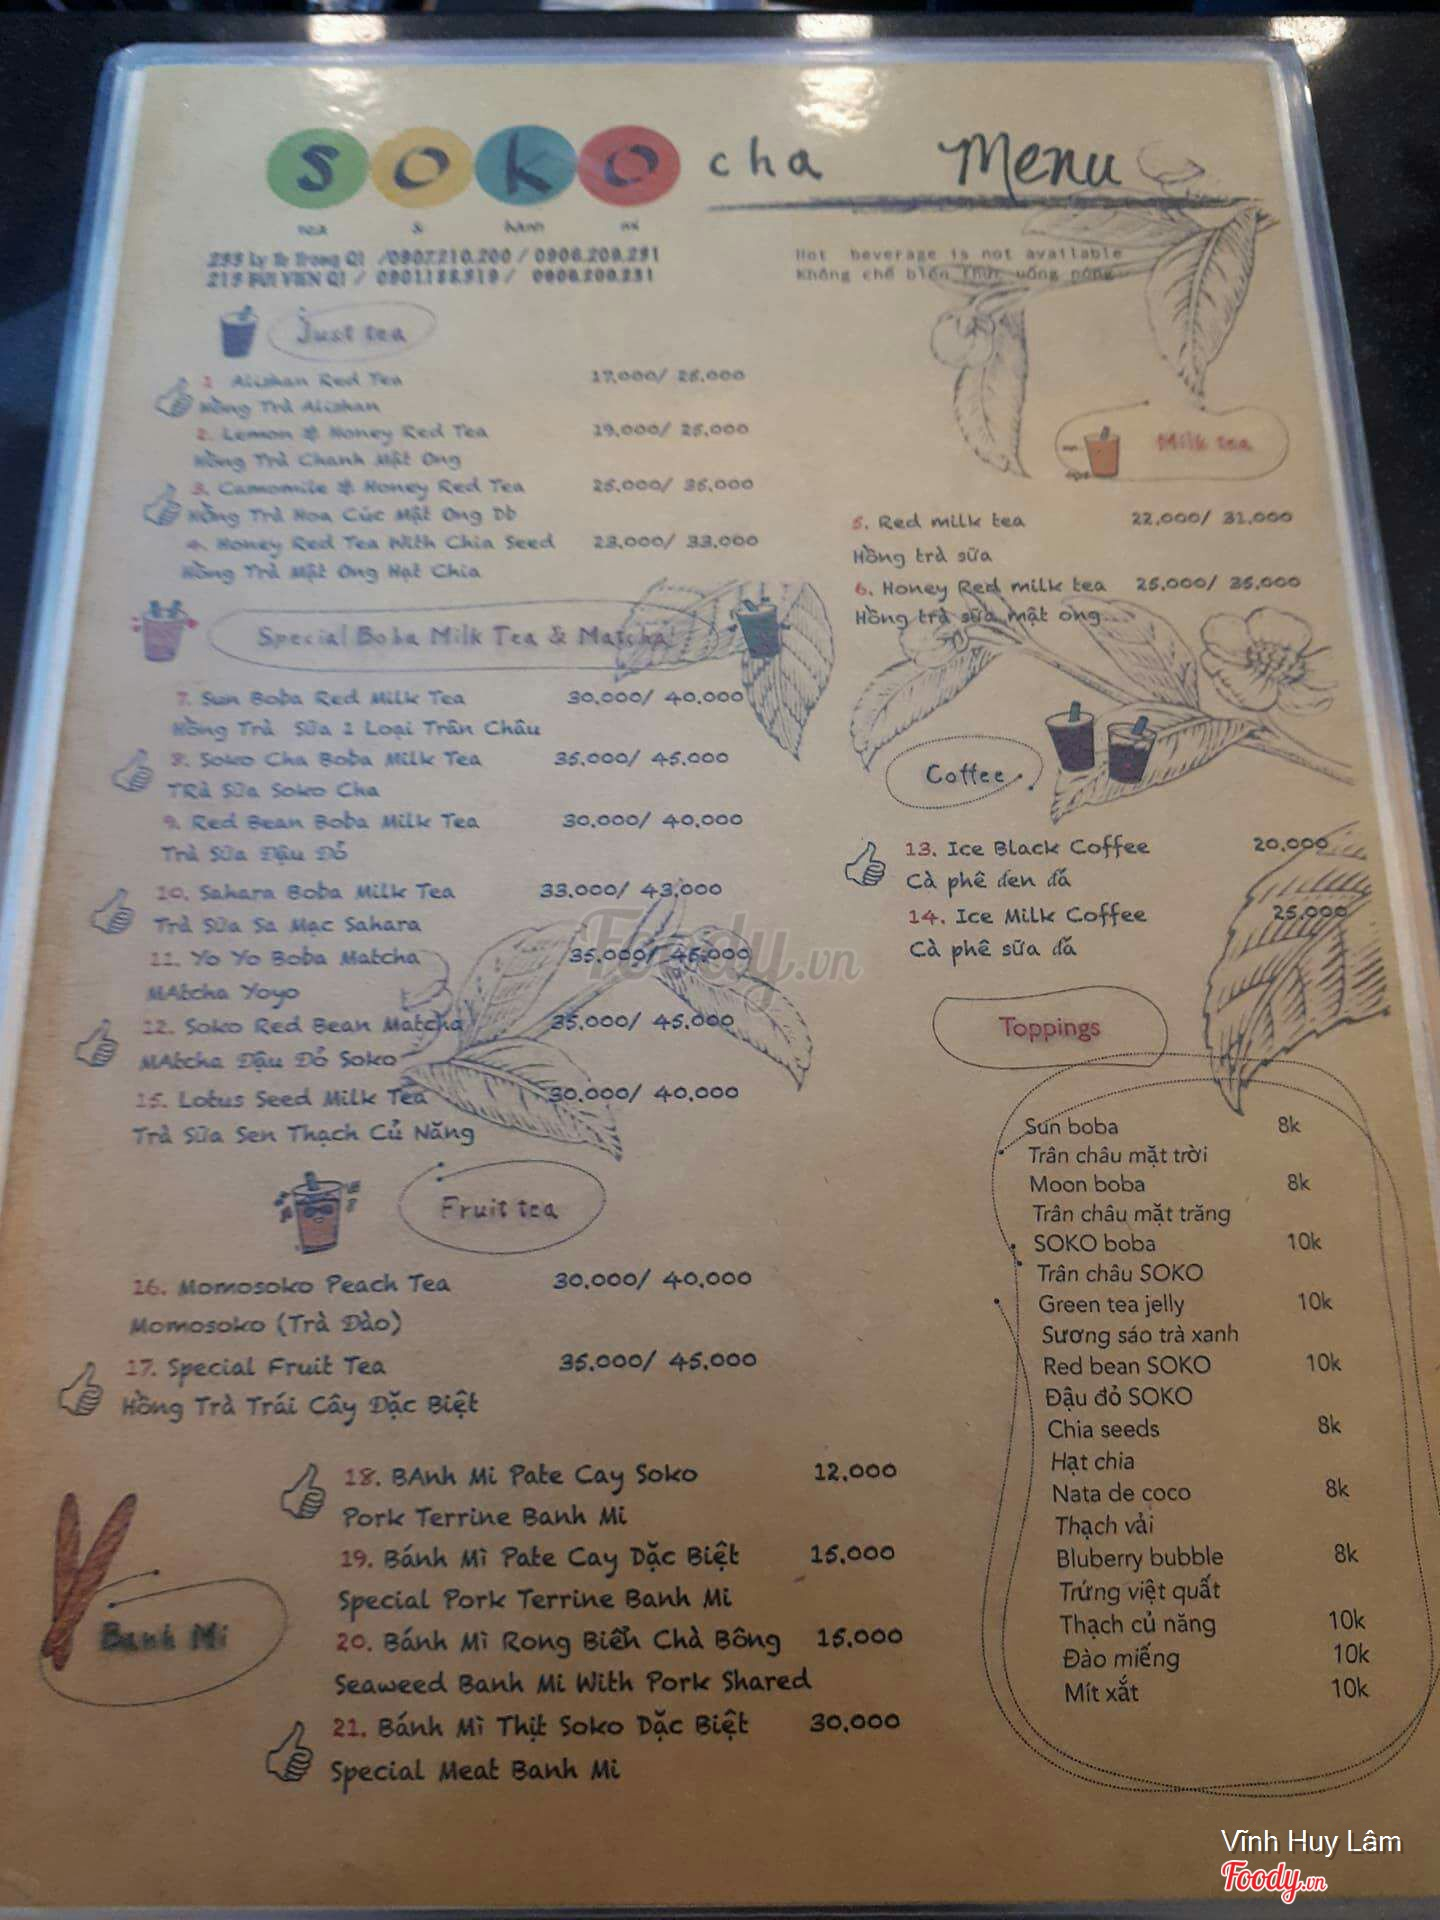 SOKO cha Menu
tea & bánh mì
233 Lý Tự Trọng Q1 /0907.210.200 / 0906.209.231
219 BUI VIEN Q1 / 0901.188.919 / 0906.209.231
Hot beverage is not available
Không chế biến thức uống nóng
Just tea
1. Alishan Red Tea 17,000/ 25,000
Hồng Trà Alishan
2. Lemon & Honey Red Tea 19,000/ 25,000
Hồng Trà Chanh Mật Ong
3. Camomile & Honey Red Tea 25,000/ 35,000
Hồng Trà Hoa Cúc Mật Ong Db
4. Honey Red Tea With Chia Seed 23,000/ 33,000
Hồng Trà Mật Ong Hạt Chia
Milk tea
5. Red milk tea 22,000/ 31,000
Hồng trà sữa
6. Honey Red milk tea 25,000/ 35,000
Hồng trà sữa mật ong
Special Boba Milk Tea & Matcha
7. Sun Boba Red Milk Tea 30,000/ 40,000
Hồng Trà Sữa 2 Loại Trân Châu
8. Soko Cha Boba Milk Tea 35,000/ 45,000
TRà Sữa Soko Cha
9. Red Bean Boba Milk Tea 30,000/ 40,000
Trà Sữa Đậu Đỏ
10. Sahara Boba Milk Tea 33,000/ 43,000
Trà Sữa Sa Mạc Sahara
11. Yo Yo Boba Matcha 35,000/ 45,000
MAtcha Yoyo
12. Soko Red Bean Matcha 35,000/ 45,000
MAtcha Đậu Đỏ Soko
15. Lotus Seed Milk Tea 30,000/ 40,000
Trà Sữa Sen Thạch Củ Năng
Coffee
13. Ice Black Coffee 20,000
Cà phê đen đá
14. Ice Milk Coffee 25,000
Cà phê sữa đá
Foody.vn
Fruit tea
16. Momosoko Peach Tea 30,000/ 40,000
Momosoko (Trà Đào)
17. Special Fruit Tea 35,000/ 45,000
Hồng Trà Trái Cây Đặc Biệt
Toppings
Sun boba 8k
Trân châu mặt trời
Moon boba 8k
Trân châu mặt trăng
SOKO boba 10k
Trân châu SOKO
Green tea jelly 10k
Sương sáo trà xanh
Red bean SOKO 10k
Đậu đỏ SOKO
Chia seeds 8k
Hạt chia
Nata de coco 8k
Thạch vải
Bluberry bubble 8k
Trứng việt quất
Thạch củ năng 10k
Đào miếng 10k
Mít xắt 10k
Banh Mi
18. BAnh Mi Pate Cay Soko 12,000
Pork Terrine Banh Mi
19. Bánh Mì Pate Cay Dặc Biệt 15,000
Special Pork Terrine Banh Mi
20. Bánh Mì Rong Biển Chà Bông 15,000
Seaweed Banh Mi With Pork Shared
21. Bánh Mì Thịt Soko Dặc Biệt 30,000
Special Meat Banh Mi
Vĩnh Huy Lâm
Foody.vn